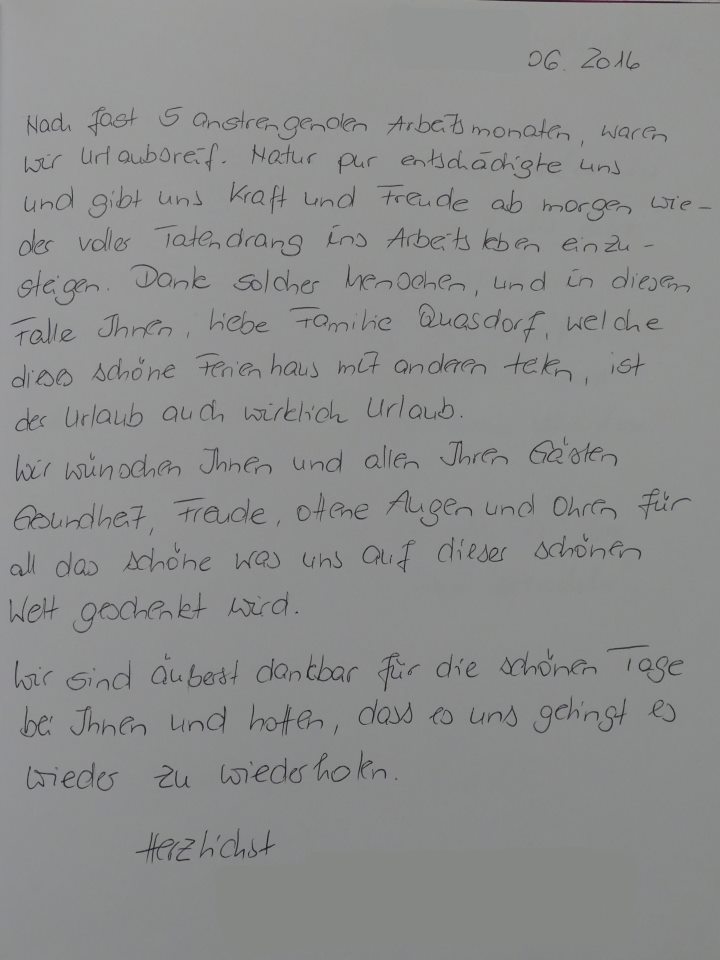 06. 2016
Nach fast 5 anstrengenden Arbeitsmonaten, waren
wir urlaubsreif. Natur pur entschädigte uns
und gibt uns Kraft und Freude ab morgen wie-
der voller Tatendrang ins Arbeitsleben einzu-
steigen. Dank solcher Menschen, und in diesem
Falle Ihnen, liebe Familie Quasdorf, welche
dieses schöne Ferienhaus mit anderen teilen, ist
der Urlaub auch wirklich Urlaub.
Wir wünschen Ihnen und allen Ihren Gästen
Gesundheit, Freude, offene Augen und Ohren für
all das schöne was uns auf dieser schönen
Welt geschenkt wird.
Wir sind äußerst dankbar für die schönen Tage
bei Ihnen und hoffen, dass es uns gelingt es
wieder zu wiederholen.
Herzlichst